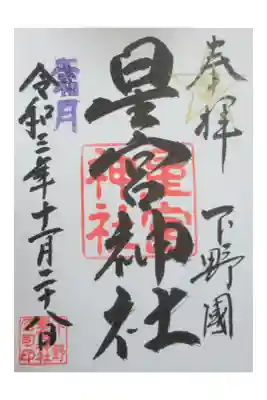 奉拝 下野國
星宮神社
星宮
神社
霜月
令和三年十一月二十八日